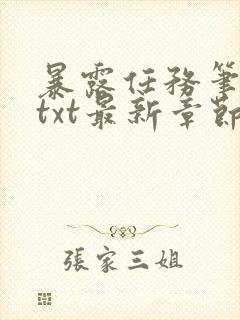 暴露任務筆
txt最新章節
張家三姐